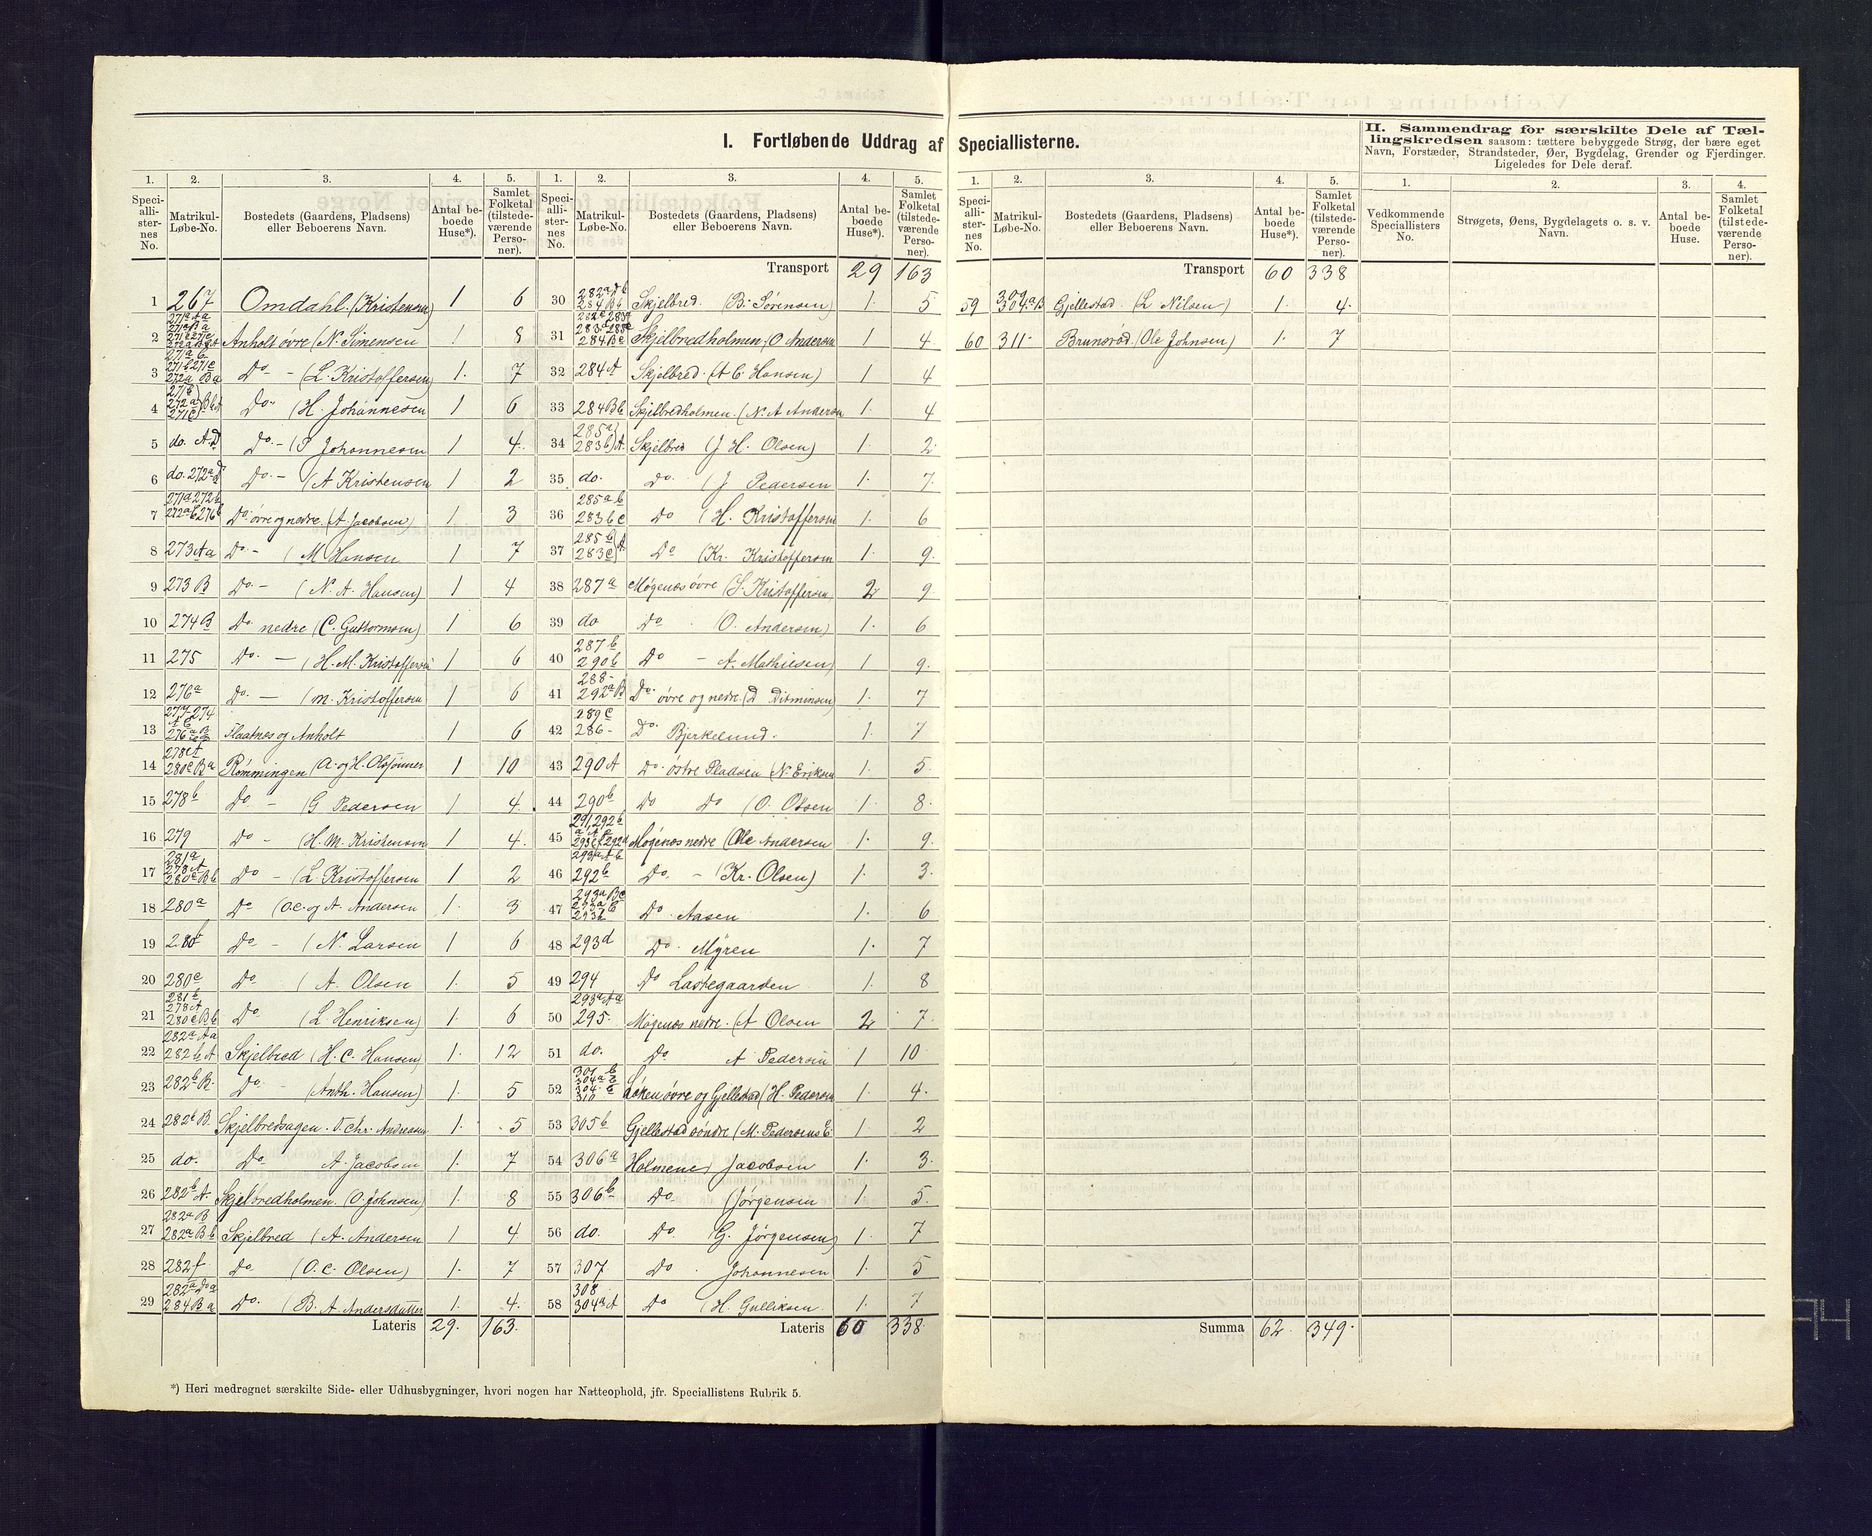 I. Fortløbende Uddrag af Speciallisterne.
II. Sammendrag for særskilte Dele af Tæl-
lingskredsen saasom: tættere bebyggede Strøg, der bære eget
Navn, Forstæder, Strandsteder, Øer, Bygdelag, Grender og Fjerdinger.
Ligeledes for Dele deraf.
1. 2. 3. 4. 5.
Speci-
allister-
nes
No.
Matrikul-
Løbe-No.
Bostedets (Gaardens, Pladsens)
eller Beboerens Navn.
Antal be-
boede
Huse*).
Samlet
Folketal
(tilstede-
værende
Perso-
ner).
1 267 Omdahl. (Kristensen) 1 6
2 Anholt övre (N. Simensen 1 8
3 Do - (L. Kristoffersen) 1. 7
4 Do (H. Johannesen 1 6
5 do. A.D Do - (S Johannesen 1 4.
6 do. 272a Do. - (A Kristensen 1 2
7 Do. övre og nedre. (A. Jacobsen) 1. 3
8 273 Aa Do - (M Hansen 1 7
9 273 B Do - (N. A. Hansen) 1 4
10 274 B Do. nedre (C. Guttormsen) 1 6
11 275 Do. - (H. M. Kristoffersen 1 6
12 276a Do - (M. Kristoffersen 1 6
13 Flaatnes og Anholt 1 6
14 278 A 280c Ba Römmingen (A. og H. Olsönner 1 10
15 278b Do - (G Pedersen 1 4.
16 279 Do - (H. M. Kristensen 1 4.
17 281a 278 A 280c Bb Do - (L. Kristoffersen 1 2
18 280a Do (O.C. og A. Andersen 1. 3
19 280b Do - (N. Larsen 1 6
20 280c Do (A. Olsen 1. 5
21 281b 278 A 280c Bb Do (L. Henriksen) 1. 6
22 282a Aa 282b A Skjelbred (H. C. Hansen) 1. 12
23 282b B. Do - (Anth. Hansen) 1. 5
24 282b B. Skjelbredsagen. T. Chr. Andreasen 1. 5
25 do. Do A. Jacobsen 1. 7
26 282b A. Skjelbredholmen. (O. Johnsen) 1. 8
27 282a B 282a Bb Skjelbred (A. Andersen 1 4
28 282f Do (O. C. Olsen) 1. 7
29 284 Ba Do. (B. A. Andersdatter 1. 4.
Lateris 29. 163.
1. 2. 3. 4. 5.
Speci-
allister-
nes
No.
Matrikul-
Løbe-No.
Bostedets (Gaardens, Pladsens)
eller Beboerens Navn.
Antal be-
boede
Huse*).
Samlet
Folketal
(tilstede-
værende
Perso-
ner).
Transport 29 163
30 284 Bb Skjelbred. (B. Sörensen) 1. 5
31 284 Bc Skjelbredholmen. (O Andersen 1 4
32 284 A Skjelbred. (A C. Hansen) 1 4
33 284 Bb Skjelbredholmen. (N. A Andersen 1. 4
34 285a 283b A. Skjelbred (J H. Olsen) 1. 2
35 do. Do. (J Pedersen 1. 7.
36 285a b 283b c Do (H. Kristoffersen 1. 6
37 285b 283c A Do (Kr. Kristoffersen 1. 9.
38 287a Mögenæs övre (S. Kristoffersen 2 9
39 do Do (O. Andersen) 1. 6
40 287b 290b Do - A. Mathiesen) 1 9.
41 288- 292a B Do. övre og nedre. (D Ditmansen) 1. 7
42 289c 286- Do. Bjerkelund. 1. 7
43 290 A Do. östre Pladsen (N. Eriksen 1. 5
44 290b Do Do (O. Olsen 1. 8.
45 Mögenæs nedre (Ole Andersen 1. 9.
46 292b Do. - (Kr. Olsen) 1. 3.
47 Do. Aasen 1. 6
48 293d Do. Myren 1. 7
49 294 Do Lastegaarden 1. 8
50 293a Aa 295. Mögenæs nedre. (A Olsen 2 7.
51 do. Do A Pedersen 1 10
52 Löken övre og Gjellestad (H. Pedersen 1. 4.
53 305b Gjellestad söndre (M. Pedersens E. 1. 2
54 306a Holmene) Jacobsen 1. 3.
55 306b Do. (Jörgensen 1. 5.
56 do. Do. G. Jörgensen) 1. 7
57 307 Do. Johannesen 1. 5
58 308 304a A Do (H. Gulliksen. 1. 7
Lateris 60 338.
1. 2. 3. 4. 5.
Speci-
allister-
nes
No.
Matrikul-
Løbe-No.
Bostedets (Gaardens, Pladsens)
eller Beboerens Navn.
Antal be-
boede
Huse*).
Samlet
Folketal
(tilstede-
værende
Perso-
ner).
Transport 60 338
59 309 304a B Gjellestad (L Nilsen) 1. 4.
60 311. Brunsröd (Ole Johnsen) 1. 7
Summa 62. 349.
1. 2. 3. 4.
Vedkommende
Speciallisters
No.
Strøgets, Øens, Bygdelagets o. s. v.
Navn.
Antal be-
boede
Huse.
Samlet
Folketal
(tilstede-
værende
Perso-
ner).
*) Heri medregnet særskilte Side- eller Udhusbygninger, hvori nogen har Natteophold, jfr. Speciallistens Rubrik 5.